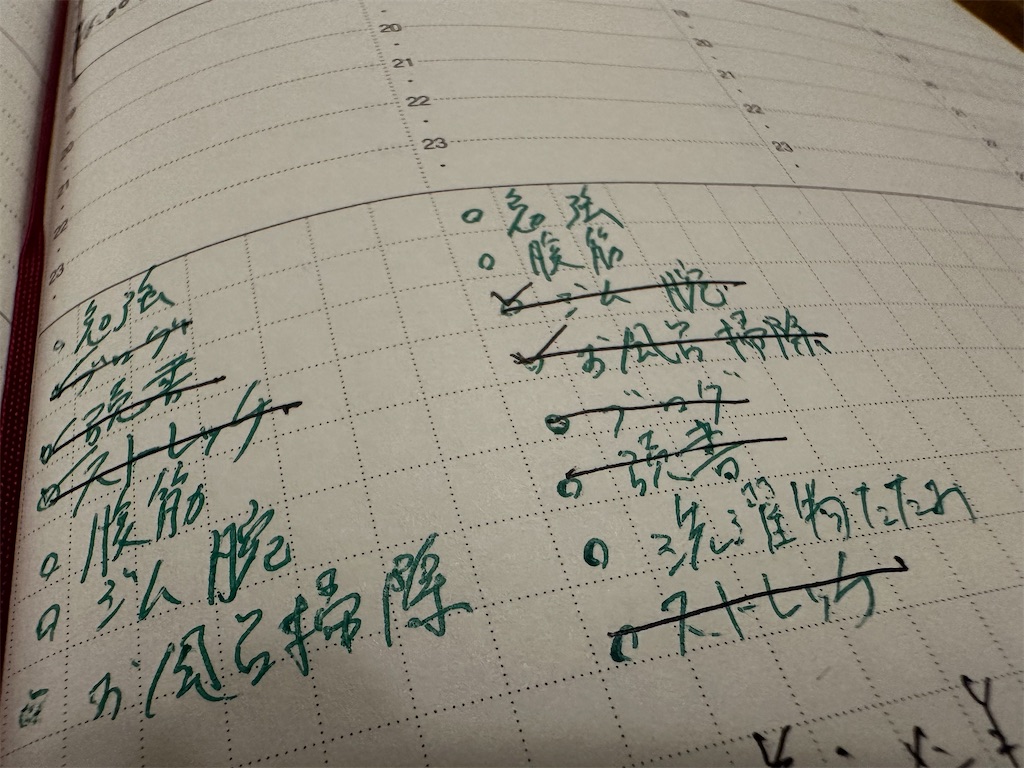 20
21
22
23
20
21
22
23
21
22
23
勉強
ブログ
読書
ストレッチ
腹筋
ジム 腕
お風呂掃除
勉強
腹筋
ジム 腕
お風呂掃除
ブログ
読書
洗濯物たたみ
ストレッチ